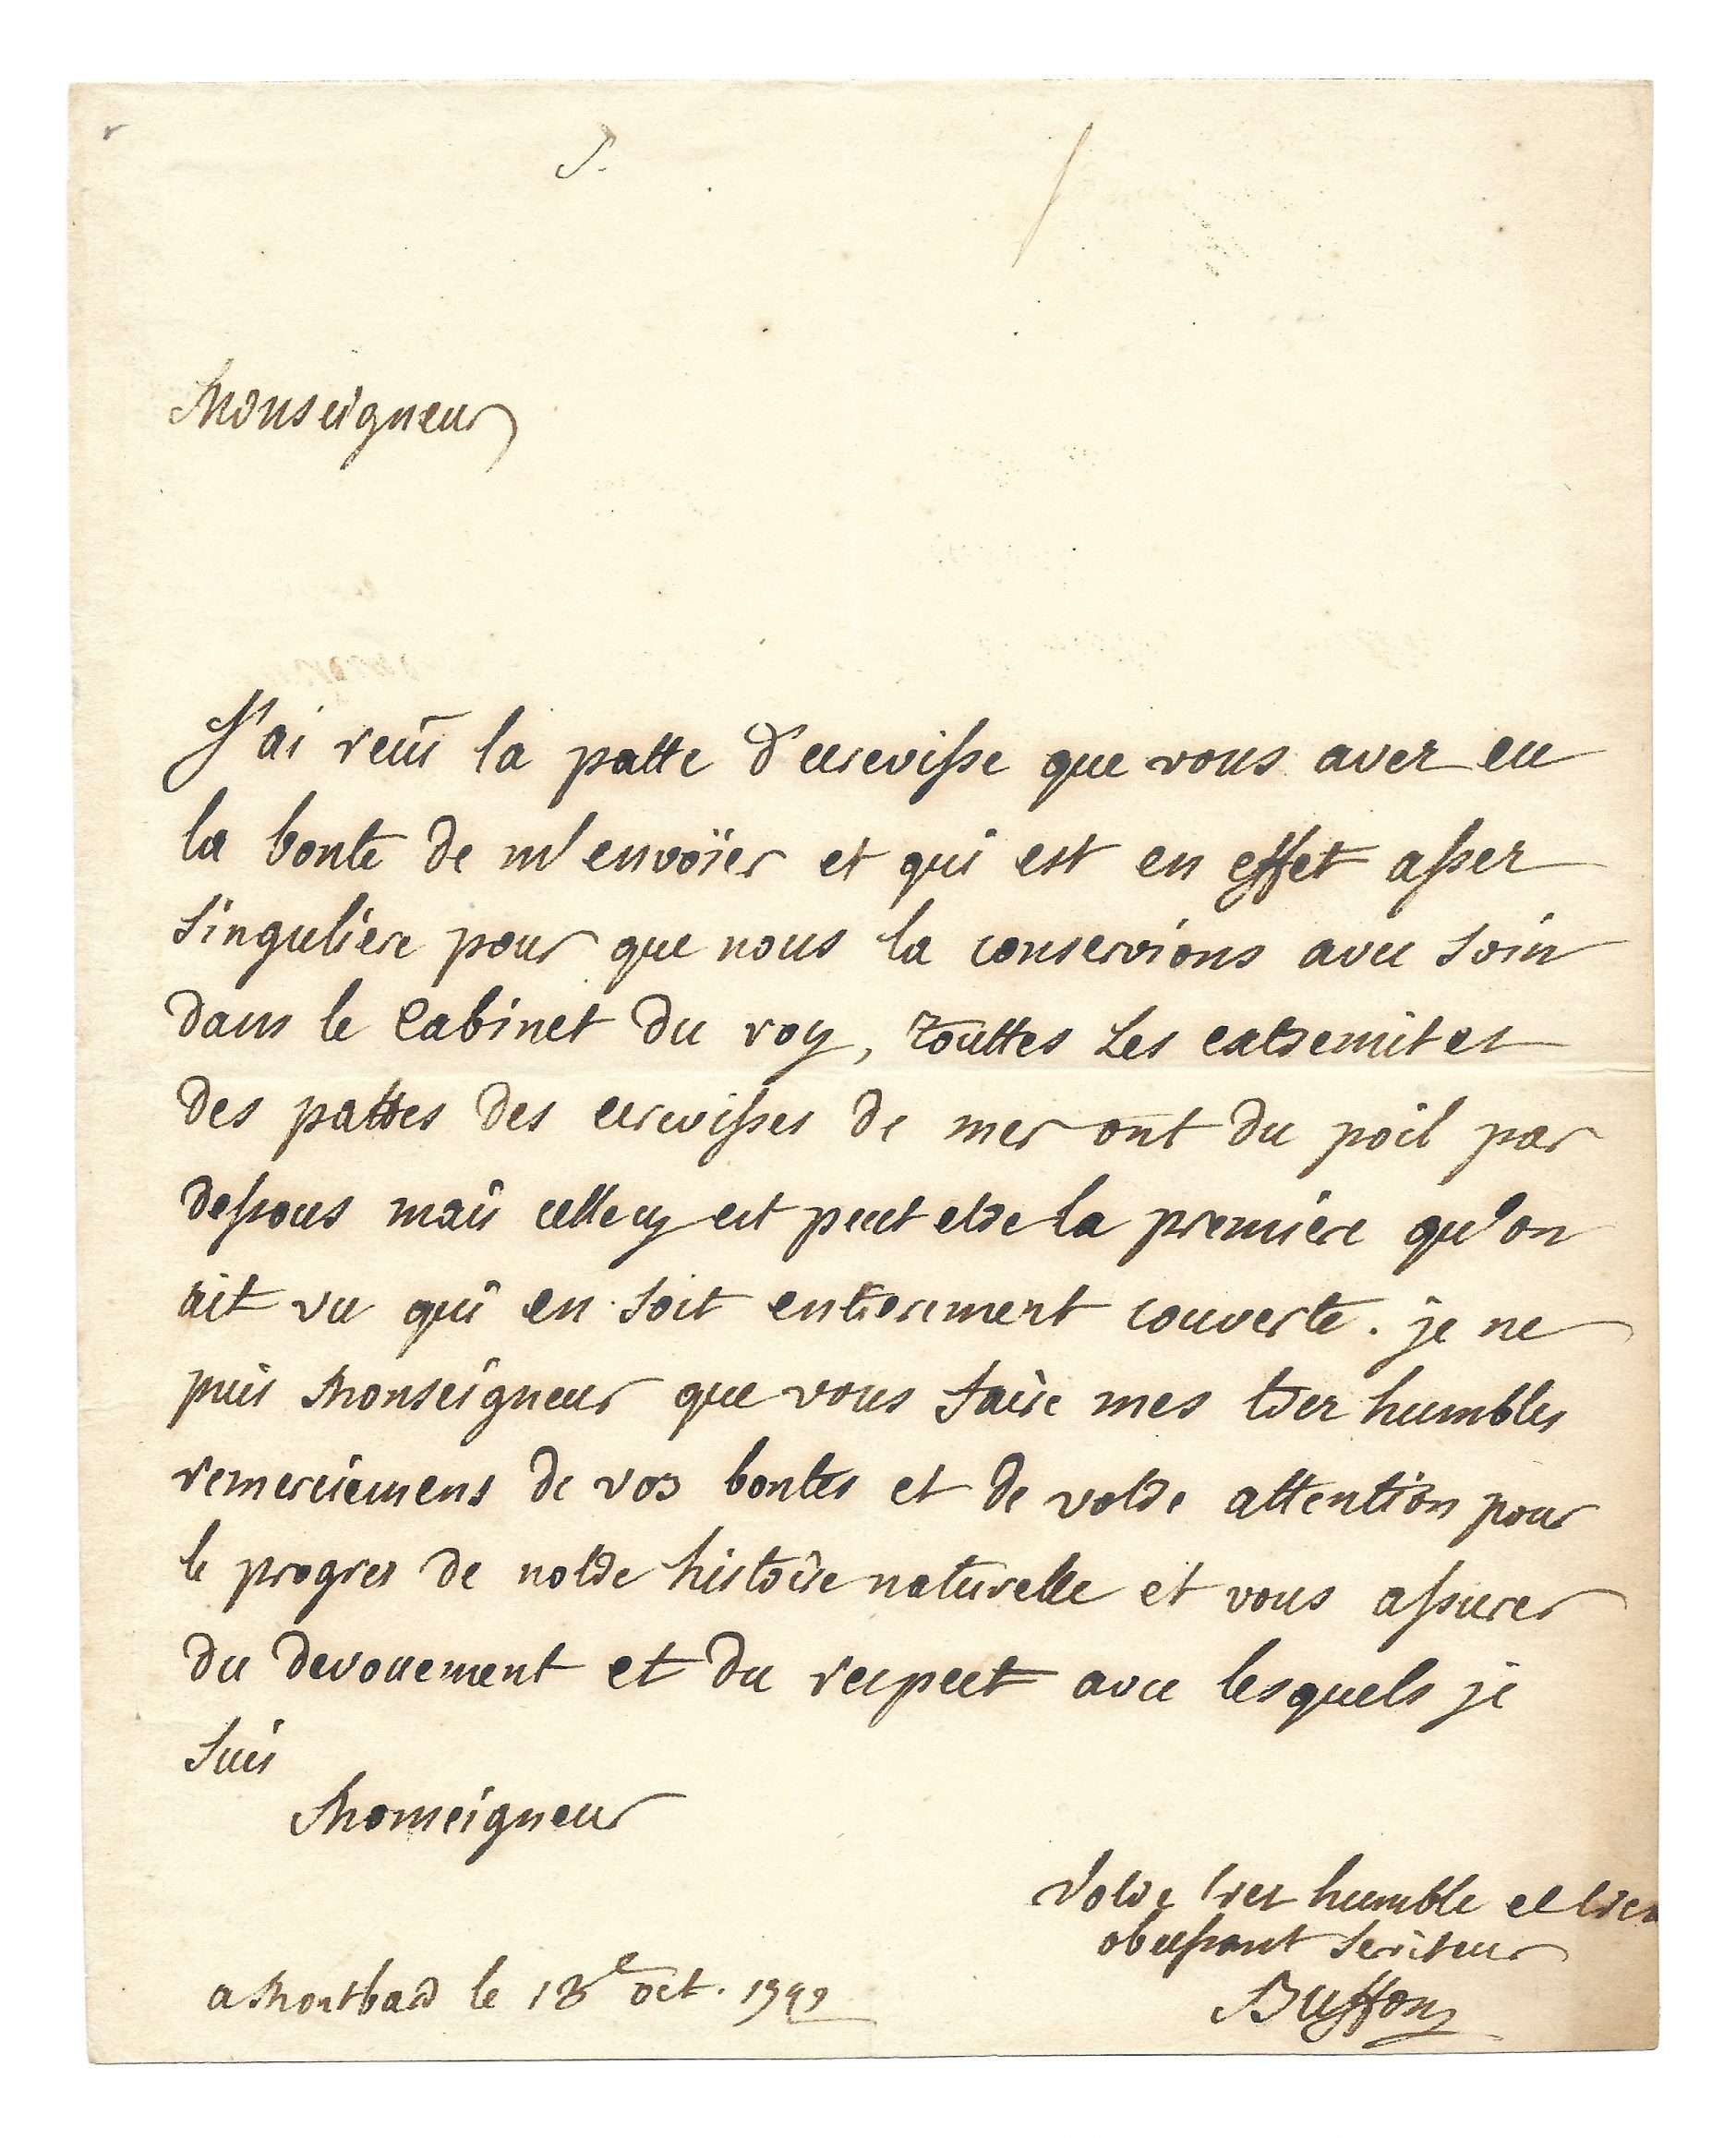 Monseigneur
J'ai reçû la patte d'ecrevisse que vous avez eu
la bonté de m'envoïer et qui est en effet assez
singuliere pour que nous la conservions avec soin
dans le Cabinet du roy, touttes Les extremitez
des pattes des ecrevisses de mer ont du poil par
dessous mais celle cy est peut etre la premiere qu'on
ait vu qui en soit entierement couverte. je ne
puis Monseigneur que vous faire mes trez humbles
remerciemens de vos bontés et de votre attention pour
le progres de notre histoire naturelle et vous assurer
du devouement et du respect avec lesquels je
suis
Monseigneur
Votre trez humble et trez
obeissant serviteur
Buffon
a Montbard le 18e oct.